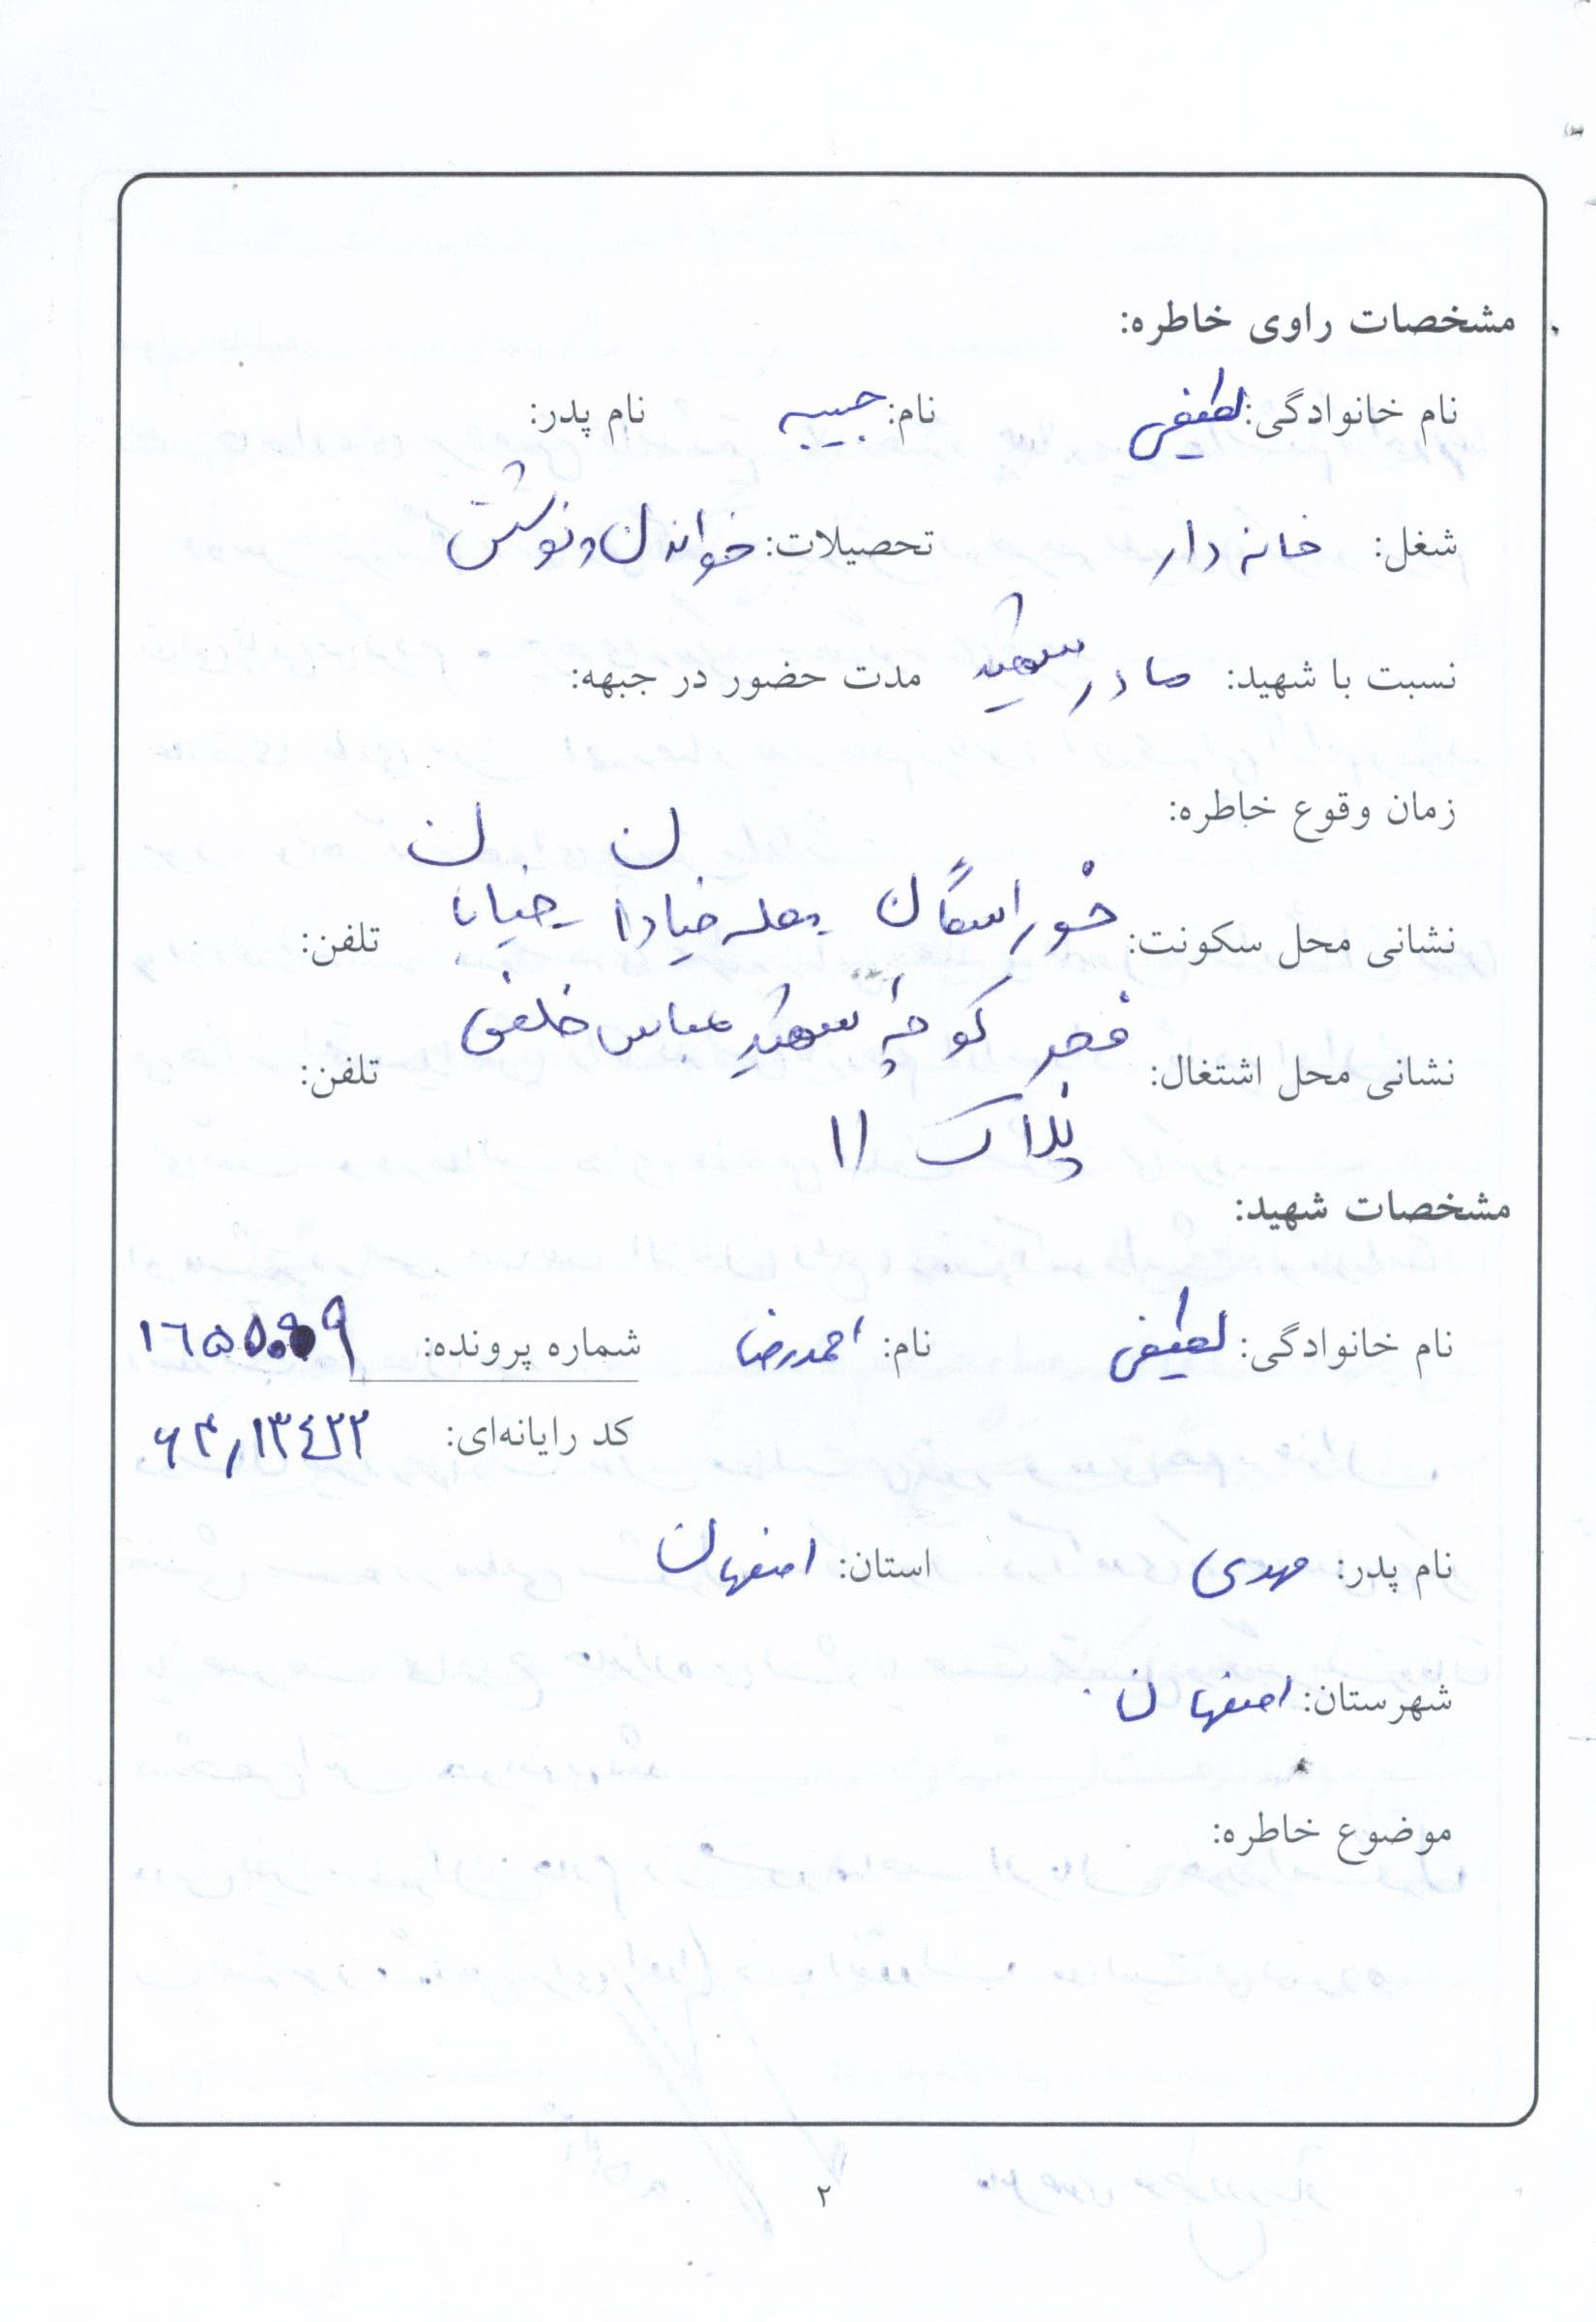 مشخصات راوی خاطره:
نام خانوادگی: لطیفی نام: حبیبه نام پدر:
شغل: خانه دار تحصیلات: خواندن و نوشتن
نسبت با شهید: مادر شهید مدت حضور در جبهه:
زمان وقوع خاطره:
نشانی محل سکونت: خوراسگان محله خیادان خیابان تلفن:
فجر کوچه شهید عباس خلفی
نشانی محل اشتغال: تلفن:
پلاک ۱۱
مشخصات شهید:
نام خانوادگی: لطیفی نام: احمدرضا شماره پرونده:
کد رایانه‌ای: ۶۴/۱۳۴۲۲
نام پدر: مهدی استان: اصفهان
شهرستان: اصفهان
موضوع خاطره:
۲